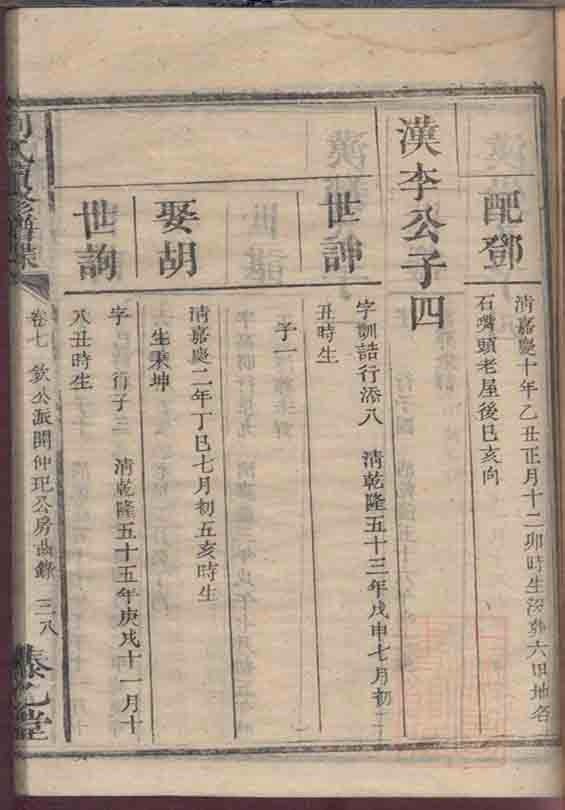 配鄧
清嘉慶十年乙丑正月十二卯時生沒葬六甲地名
石嘴頭老屋後巳亥向
漢李公子四
世訷
字訓詰行添八 清乾隆五十三年戊申七月初二
丑時生
子一
娶胡
清嘉慶二年丁巳七月初五亥時生
生秉坤
世詢
字 行子三 清乾隆五十五年庚戌十一月十
八丑時生
卷七 欽公派開仲玘公房齒錄 三八